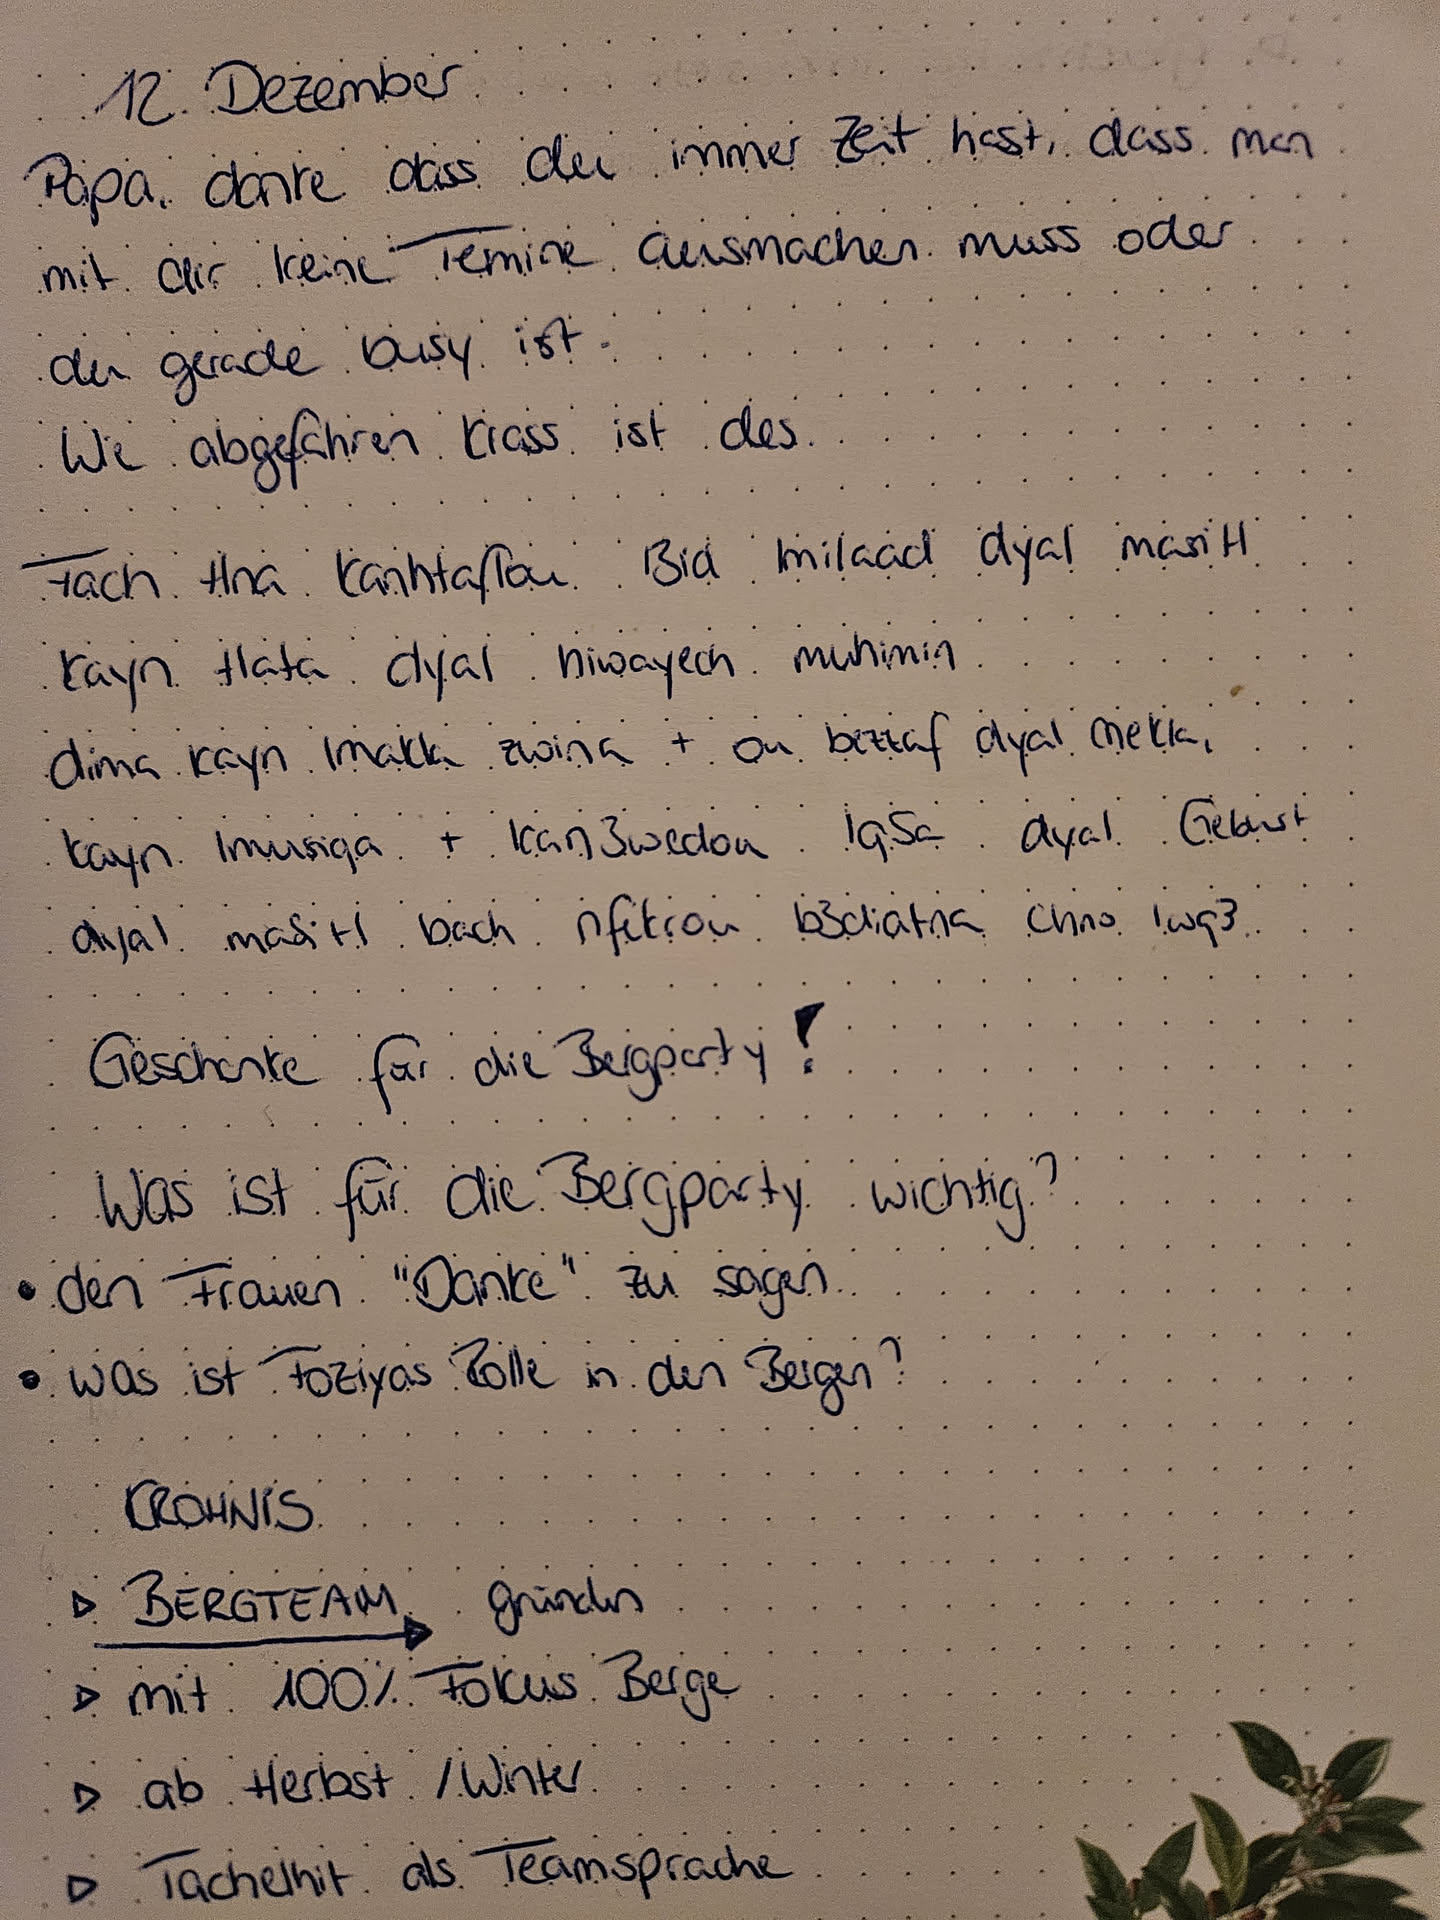 12. Dezember
Papa, danke dass du immer Zeit hast, dass man
mit dir keine Termine ausmachen muss oder
du gerade busy ist.
Wie abgefahren krass ist des.
Fach Hna kanhtaflou 3id lmilaad dyal masiH
kayn tlata dyal hiwayech muhimin
dima kayn lmakla zwina + ou bezzaf dyal mekla,
kayn lmusiqa + kan3wedou lqSa dyal Geburt
dyal masiH bach nfekrou b3diatna chno lwq3.
Geschenke für die Bergparty!
Was ist für die Bergparty wichtig?
• den Frauen "Danke" zu sagen
• was ist Foziyas Rolle in den Bergen?
KROHNIS
▷ BERGTEAM gründen
▷ mit 100% Fokus Berge
▷ ab Herbst / Winter
▷ Tachelhit als Teamsprache